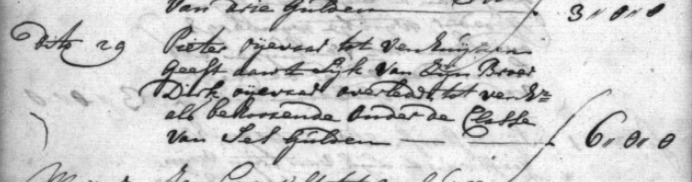 van drie Gulden — 3 " 0 " 0
Dito 29 Pieter oijevaar tot Venhuijsen
geeft aan 't Lijk van Zijn Broer
Dirk oijevaar overleden tot venh:
als behoorende onder de Classe
van Ses Gulden — 6 " 0 " 0